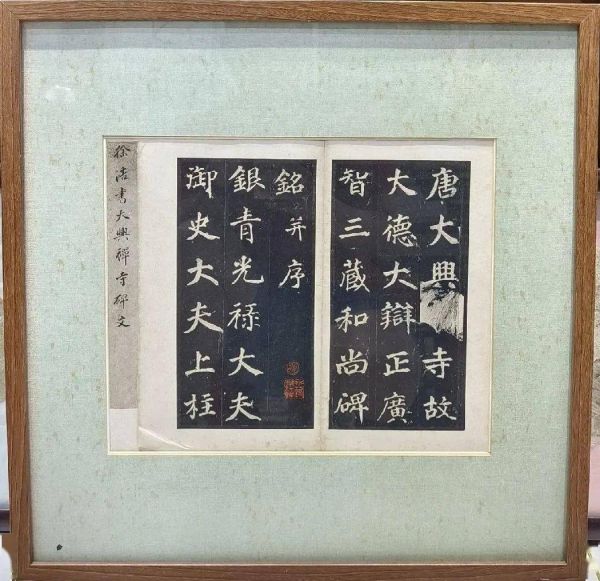 唐大興寺故
大德大辯正廣
智三藏和尚碑
銘并序
銀青光禄大夫
御史大夫上柱
徐浩書大興禪寺碑文